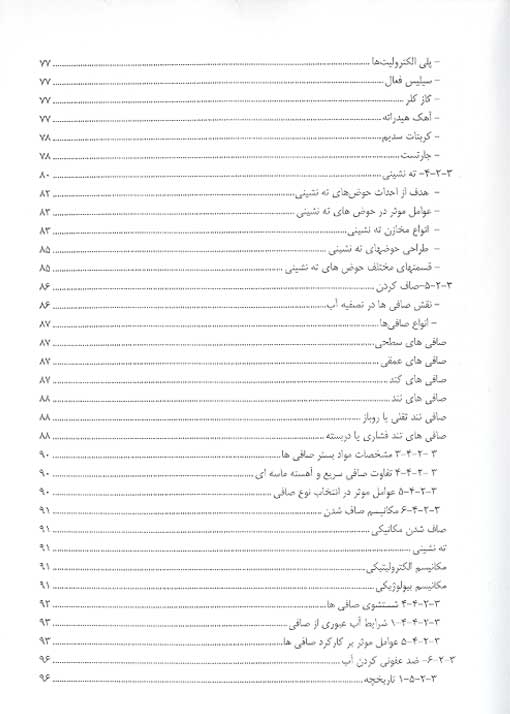 - پلی الکترولیت‌ها ۷۷
- سیلیس فعال ۷۷
- گاز کلر ۷۷
- آهک هیدراته ۷۷
- کربنات سدیم ۷۸
- جارتست ۷۸
۳-۲-۴- ته نشینی ۸۰
- هدف از احداث حوض‌های ته نشینی ۸۲
- عوامل موثر در حوض های ته نشینی ۸۳
- انواع مخازن ته نشینی ۸۳
- طراحی حوضهای ته نشینی ۸۵
- قسمتهای مختلف حوض های ته نشینی ۸۵
۳-۲-۵- صاف کردن ۸۶
- نقش صافی ها در تصفیه آب ۸۶
- انواع صافی‌ها ۸۷
صافی های سطحی ۸۷
صافی های عمقی ۸۷
صافی های کند ۸۷
صافی های تند ۸۸
صافی تند ثقلی یا روباز ۸۸
صافی های تند فشاری یا دربسته ۸۸
۳-۲-۴-۳ مشخصات مواد بستر صافی ها ۹۰
۳-۲-۴-۴ تفاوت صافی سریع و آهسته ماسه ای ۹۰
۳-۲-۴-۵ عوامل موثر در انتخاب نوع صافی ۹۰
۳-۲-۴-۶ مکانیسم صاف شدن ۹۱
صاف شدن مکانیکی ۹۱
ته نشینی ۹۱
مکانیسم الکترولیتیکی ۹۱
مکانیسم بیولوژیکی ۹۱
۳-۲-۴-۴ شستشوی صافی ها ۹۲
۳-۲-۴-۴-۱ شرایط آب عبوری از صافی ۹۳
۳-۲-۴-۵ عوامل موثر بر کارکرد صافی ها ۹۳
۳-۲-۶- ضد عفونی کردن آب ۹۶
۳-۲-۵-۱ تاریخچه ۹۶